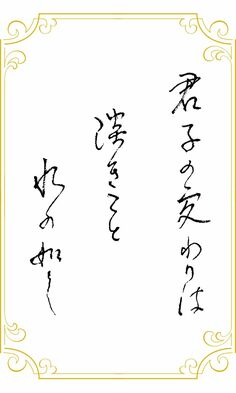 君子の交わりは
淡きこと
水の如し